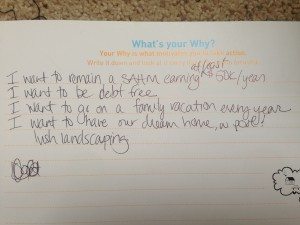 What's your Why?
Your Why is what motivates you to take action.
Write it down and look at it every
at least
I want to remain a SAHM earning $60K/year
I want to be debt free
I want to go on a family vacation every year
I want to have our dream home, w pool &
lush landscaping